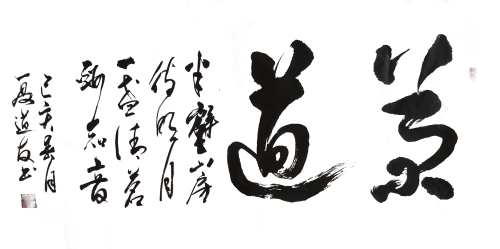 茶道
半壁山房
待明月
一盏清茗
酬知音
己亥春月
道友书